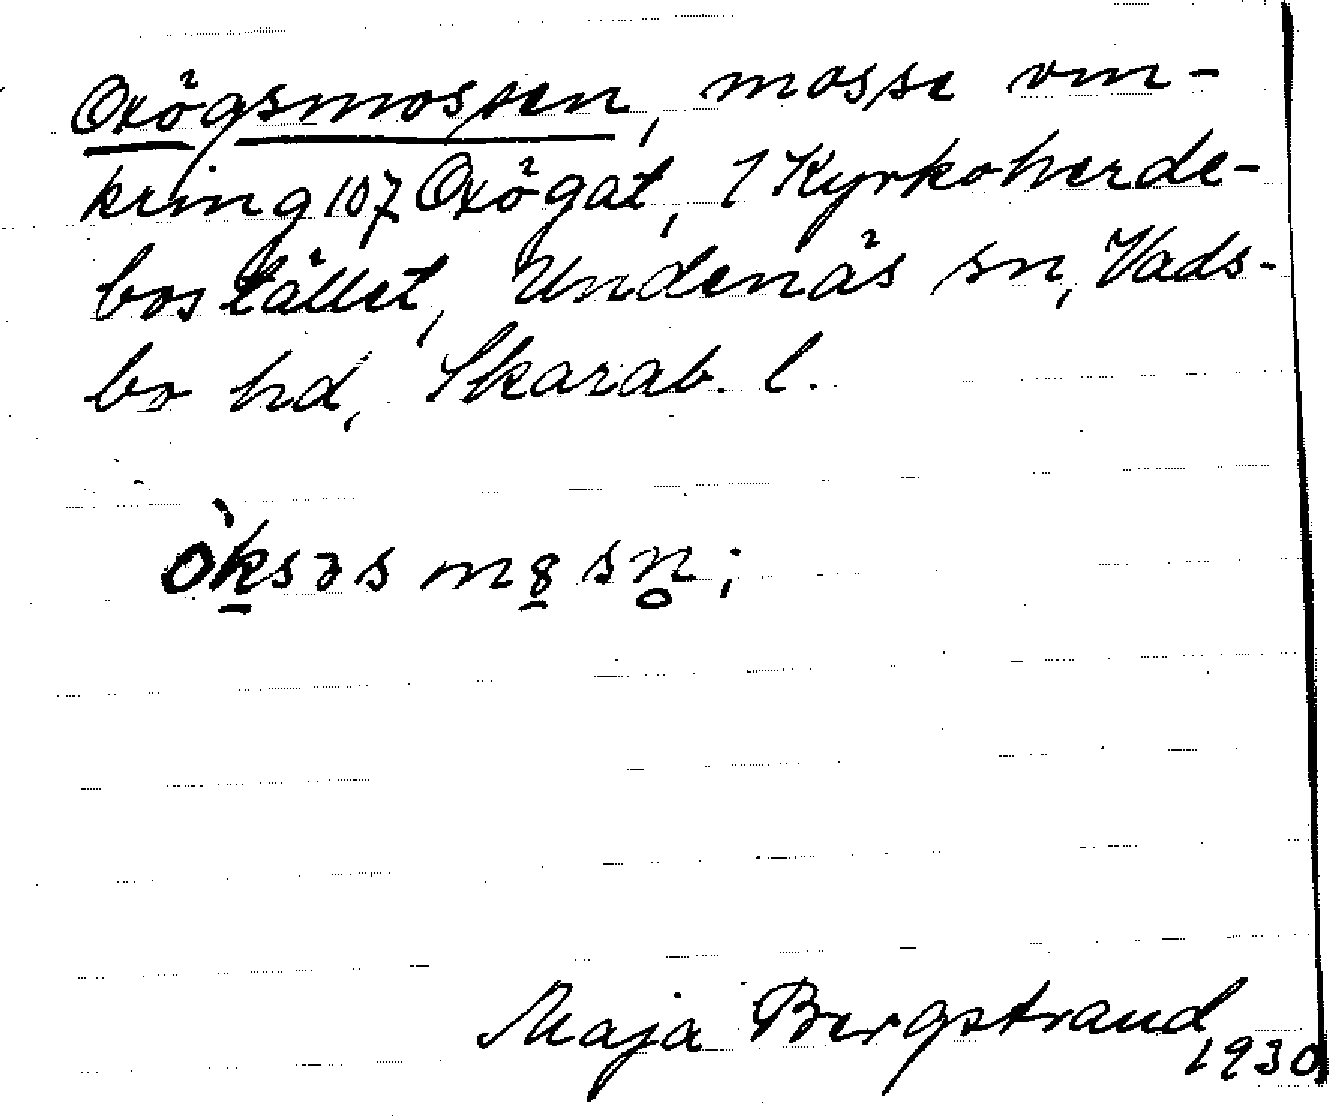 Oxögsmossen, mosse om-
kring 107 Oxögat, 1 Kyrkoherde-
bostället, Undenäs sn, Vads-
bo hd, Skarab. l.
Maja Bergstrand
1930